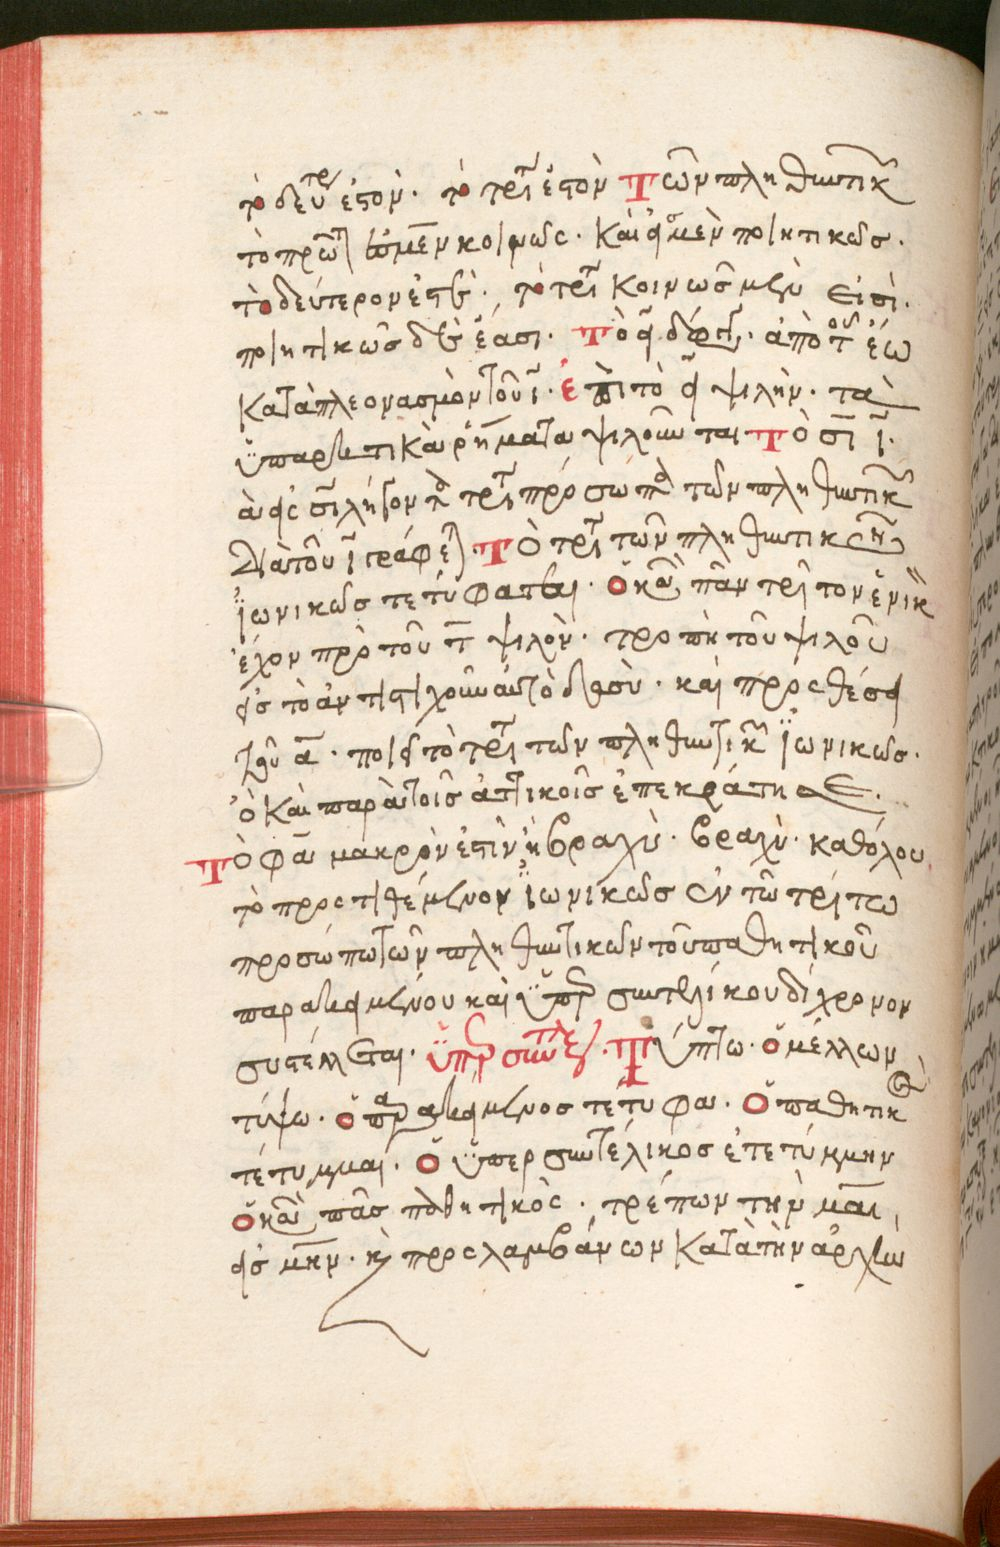 τὸ δεύτρ ἐστὸν. τὸ τρίτ ἐστὸν Τῶν πληθυντικ
τὸ πρῶτ ἐσμὲν κοινῶς. καὶ εἰμὲν ποιητικῶς.
τὸ δεύτερον ἐστὲ. τὸ τρίτ κοινῶς μὲν εἰσὶ.
ποιητικῶς δὲ ἔασι. Τὸ ει δίφθ. ἀπὸ τοῦ ἔω
κατὰ πλεονασμὸν τοῦ ι. ἐπὶ τὸ ει ψιλὴν. τὰ
ὑπαρκτικὰ ῥήματα ψιλοῦνται Τὸ σι ι.
εἰς σι λῆγον τρίτ πρόσωπ τῶν πληθυντικ
διὰ τοῦ ι γράφε Τὸ τρίτ τῶν πληθυντικ
ἰωνικῶς τετύφαται. Ὁ κα πᾶν τρίτον ἑνικ
ἔχον πρὸ τοῦ τ ψιλὸν. τροπῆ τοῦ ψιλοῦ
εἰς τὸ ἀντιστιχοῦν αὐτὸ δασὺ. καὶ προσθέσει
τοῦ α. ποιεῖ τὸ τρίτ τῶν πληθυντικ ἰωνικῶς.
ὃ καὶ παρὰ τοῖς ἀττικοῖς ἐπεκράτησε.
Τὸ φα μακρὸν ἐστὶν ἢ βραχὺ. βραχὺ. καθόλου
τὸ προστιθέμενον ἰωνικῶς ἐν τῶ τρίτω
προσώπω τῶν πληθυντικῶν τοῦ παθητικοῦ
παρακειμένου καὶ ὑπερσυντελίκου δίχρονον
συστέλλεται. ὑπερσυντελ. Τύπτω. ὁ μέλλων
τύψω. ὁ παρακείμενος τέτυφα. Ὁ παθητικ
τέτυμμαι. Ὁ ὑπερσυντέλικος ἐτετύμμην
Ὁ κα πᾶς παθητικὸς. τρέπων τὴν μαι
εἰς μην. κ προσλαμβάνων κατὰ τὴν ἀρχὴν